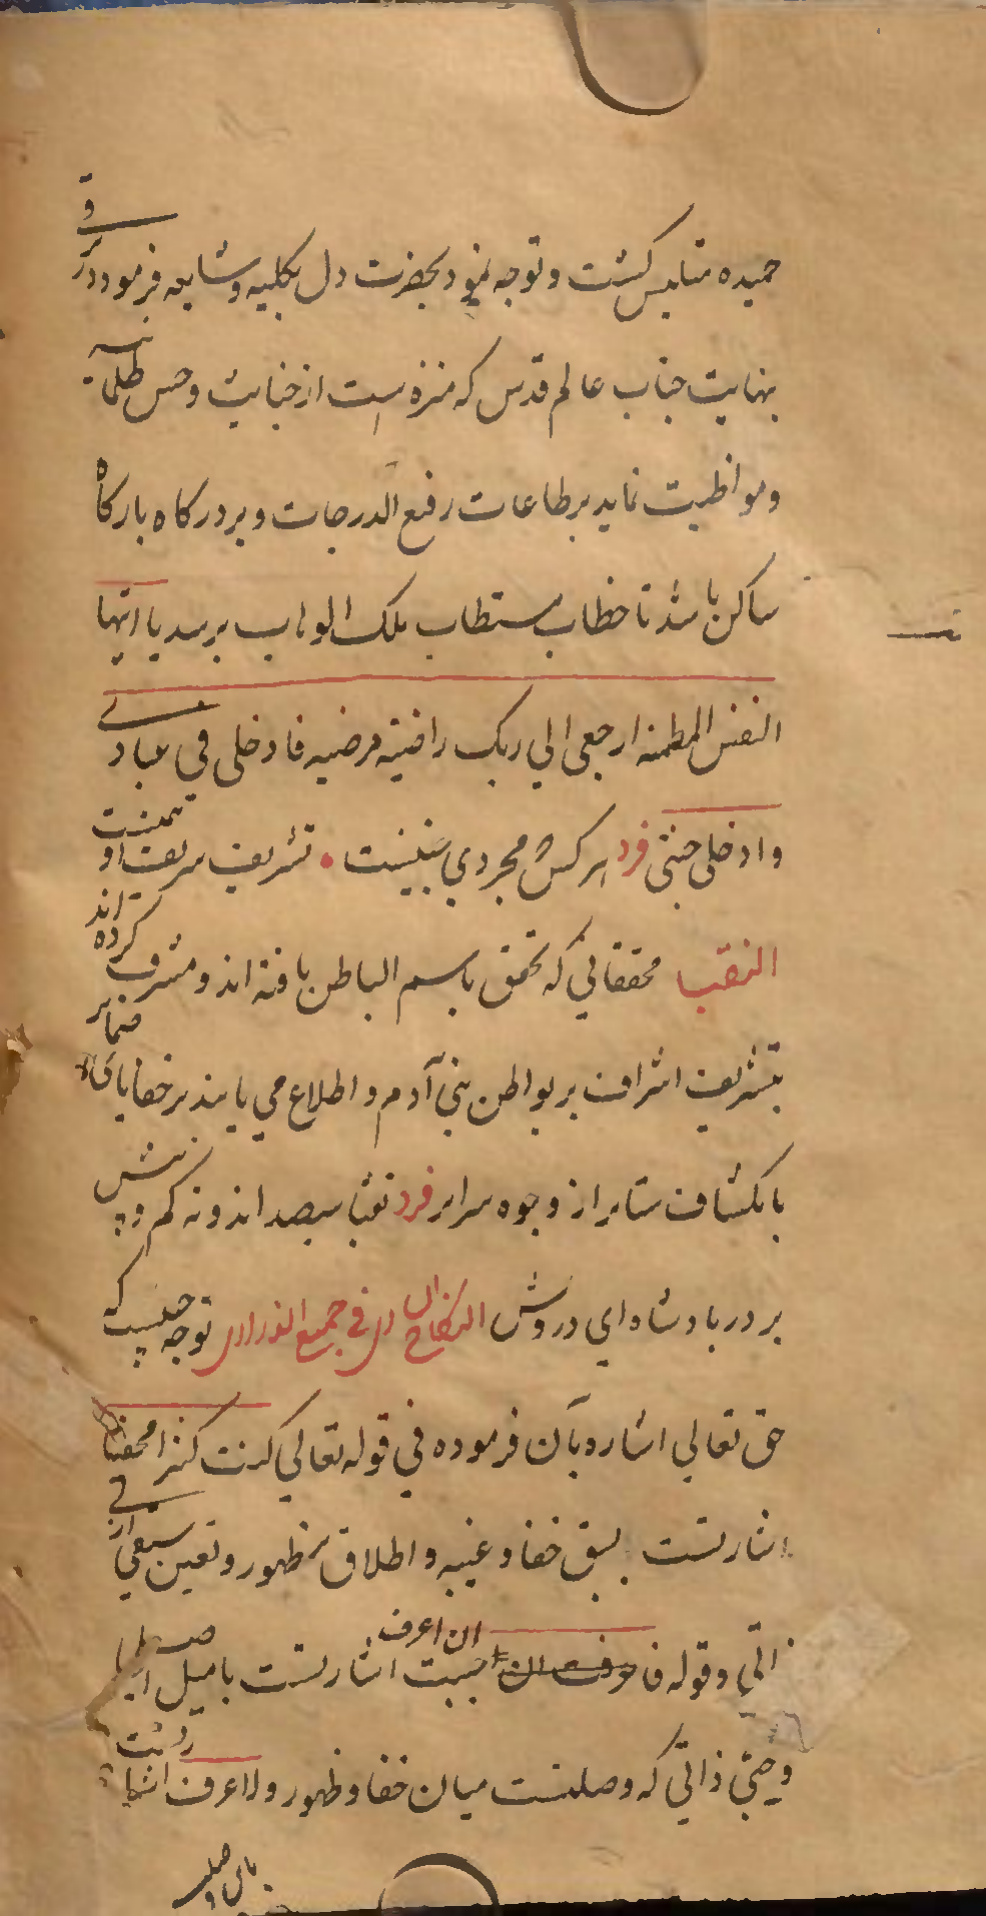 حمیده متلبس کشت و توجه نمود بحضرت دل بکلیه و مشایعه فرمود در ترقی
بنهایت جناب عالم قدس که منزه است از خباثت و حس ظلمانیه
و مواظبت نماید بر طاعات رفیع الدرجات و بر درکاه بارکاه
ساکن باشد تا خطاب مستطاب ملک الوهاب برسد یا ایتها
النفس المطمئنه ارجعی الی ربک راضیته مرضیه فادخلی فی عبادی
وادخلی جنتی فرد هر کس مجردی تشریف
النقبا محققانی که تحقق باسم الباطن یافته اند و مشرف کرده اند
بتشریف اشراف بر بواطن بنی آدم و اطلاع می یابند بر خفایای ضمایر
بانکشاف ستایر از وجوه سرایر فرد نقبا سیصد اند و نه کم و بیش
بر در پادشاه ای درویش النکاح الساری فی جمیع الذراری توجه حبیست که
حق تعالی اشاره بآن فرموده فی قوله تعالی کنت کنزا مخفیا
اشارتست بسبق خفا و غیبه و اطلاق بر ظهور و تعین سبقی ازلی
ذاتی و قوله فاحببت ان اعرف اشارتست بامیل اصلی
و حبی ذاتی که وصلتست میان خفا و ظهور و لاعرف اشارتست
باین وصلت